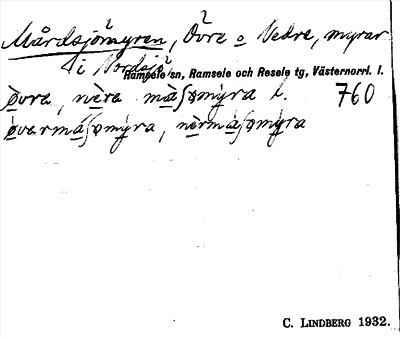 Mårdsjömyren, Övre o Nedre, myrar
i Nordsjö
Ramsele sn, Ramsele och Resele tg, Västernorrl. l.
òvre, nère måʃømýra l. 760
òvermåʃømýra, nèrmåʃømýra
C. LINDBERG 1932.